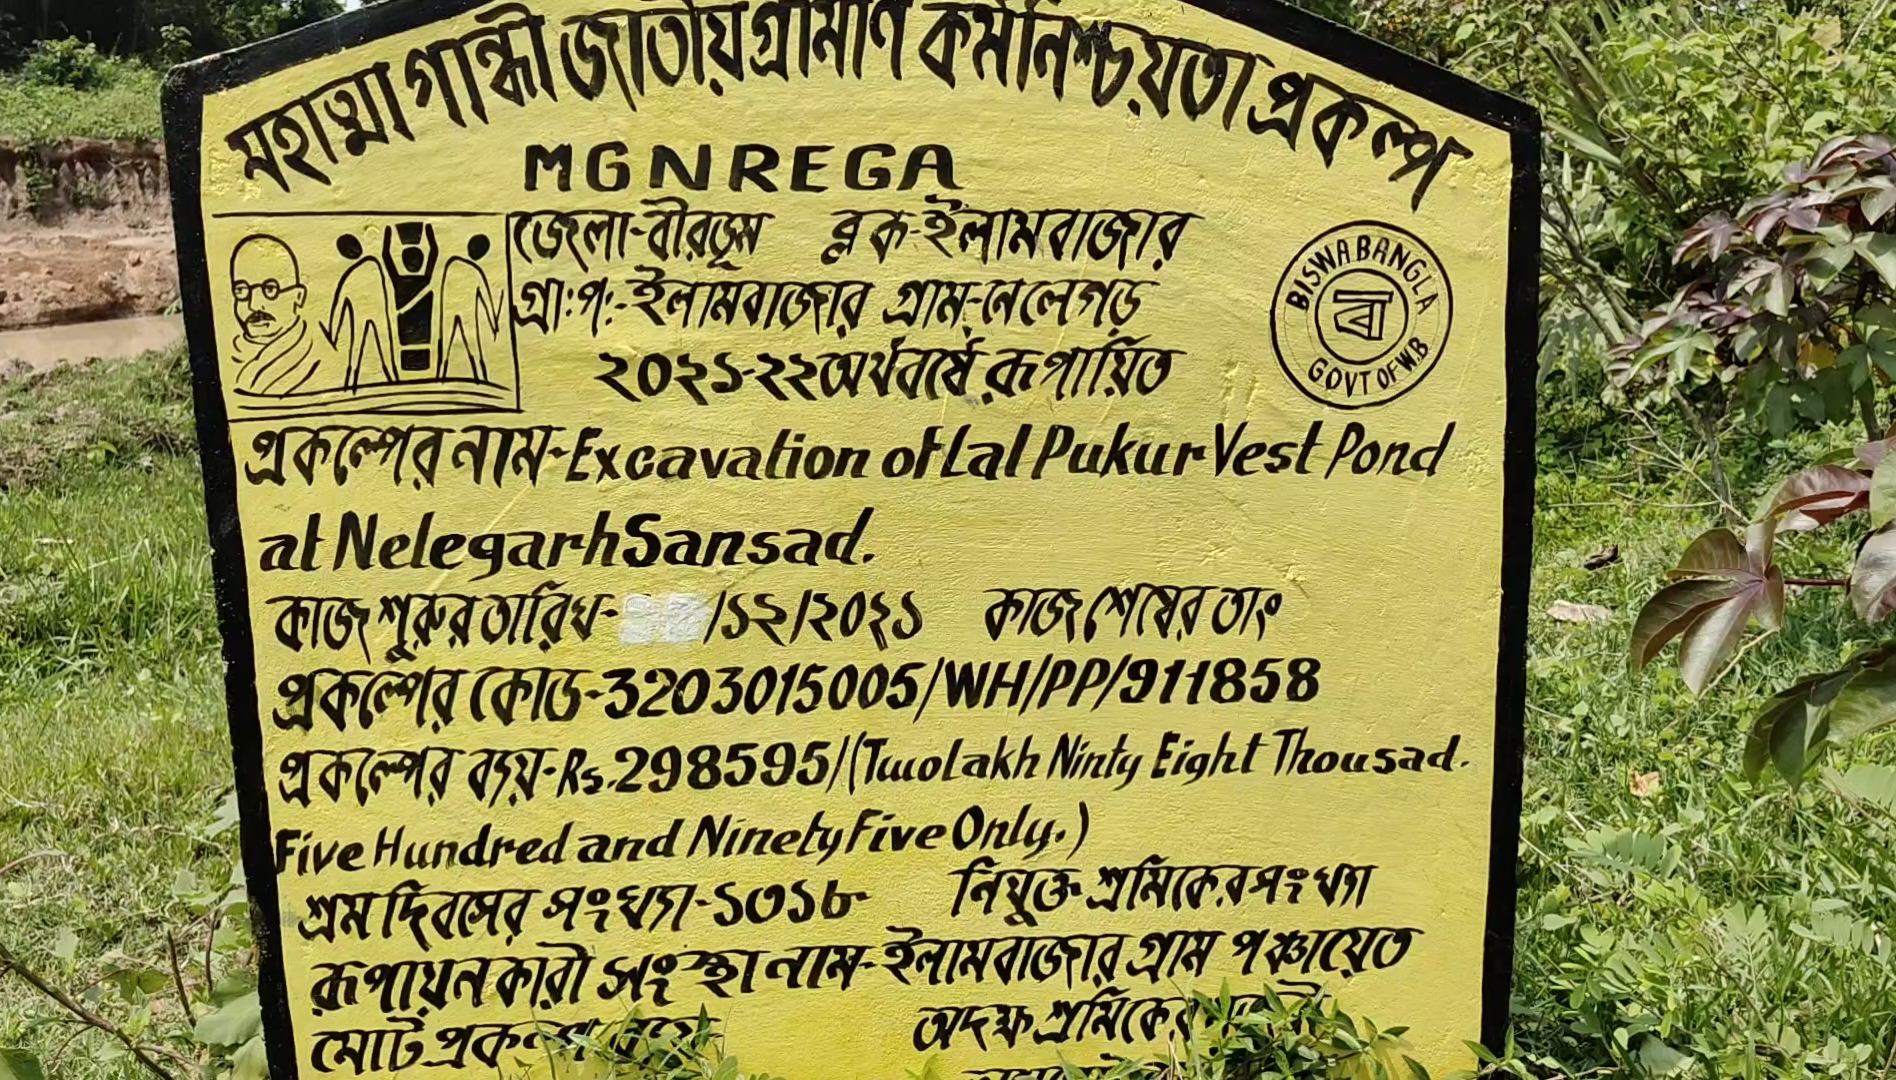 মহাত্মা গান্ধী জাতীয় গ্রামীণ কর্মনিশ্চয়তা প্রকল্প
MGNREGA
জেলা-বীরভূম ব্লক-ইলামবাজার
গ্রা:প:-ইলামবাজার গ্রাম-নেলেগড়
২০২১-২২ অর্থবর্ষে রূপায়িত
BISWA BANGLA
ব
GOVT OF W.B
প্রকল্পের নাম-Excavation of Lal Pukur Vest Pond
at Nelegarh Sansad.
কাজ শুরুর তারিখ- /১২/২০২১ কাজ শেষের তাং
প্রকল্পের কোড-3203015005/WH/PP/911858
প্রকল্পের ব্যয়-Rs.298595/(Two Lakh Ninty Eight Thousad.
Five Hundred and Ninety Five Only.)
শ্রম দিবসের সংখ্যা-১৩১৮ নিযুক্ত শ্রমিকের সংখ্যা
রূপায়নকারী সংস্থা নাম-ইলামবাজার গ্রাম পঞ্চায়েত
মোট প্রকল্প অদক্ষ শ্রমিকের